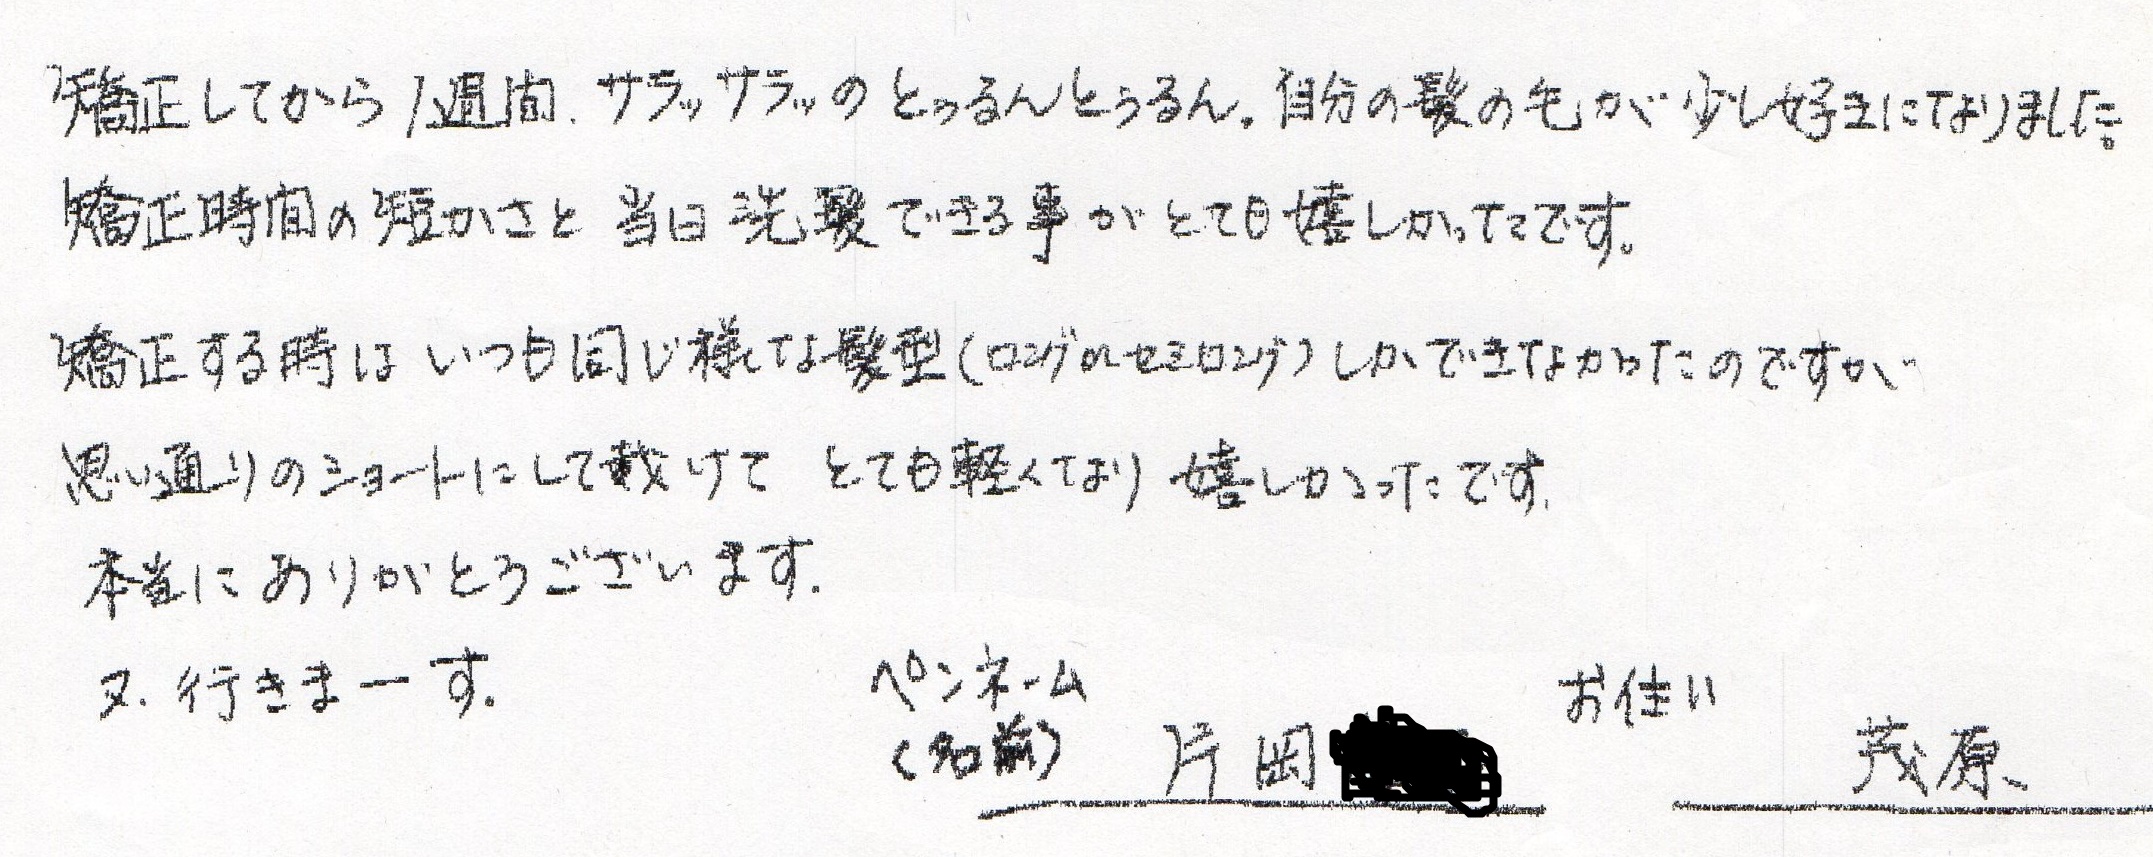 矯正してから1週間、サラッサラッのとぅるんとぅるん。自分の髪の毛が少し好きになりました。
矯正時間の短かさと当日洗髪できる事がとても嬉しかったです。
矯正する時はいつも同じ様な髪型(ロングorセミロング)しかできなかったのですが
思い通りのショートにして戴けてとても軽くなり嬉しかったです。
本当にありがとうございます。
又、行きまーす。
ペンネーム
(名前) 片岡
お住い 茂原